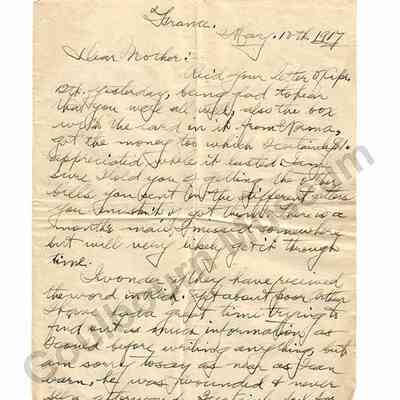 France.
May. 10th. 1917
Dear Mother:
Rec'd your letter of Apr.
yesterday, being glad to hear
that you were all well, also the box
with the card in it from
got the money too which I certainly
appreciated while it lasted I am
sure I told you of getting the other
bills you sent in the different letters
you mention I got them. There is a
month's mail I missed somewhere
but will very likely get it through
time.
I wonder if they have received
the word in about poor
I have had a great time trying to
find out as much information as
I could before writing anything but
am sorry to say as near as I can
learn, he was wounded & never